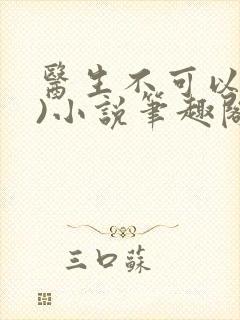 醫生不可以
)小說筆趣閣
三口蘇